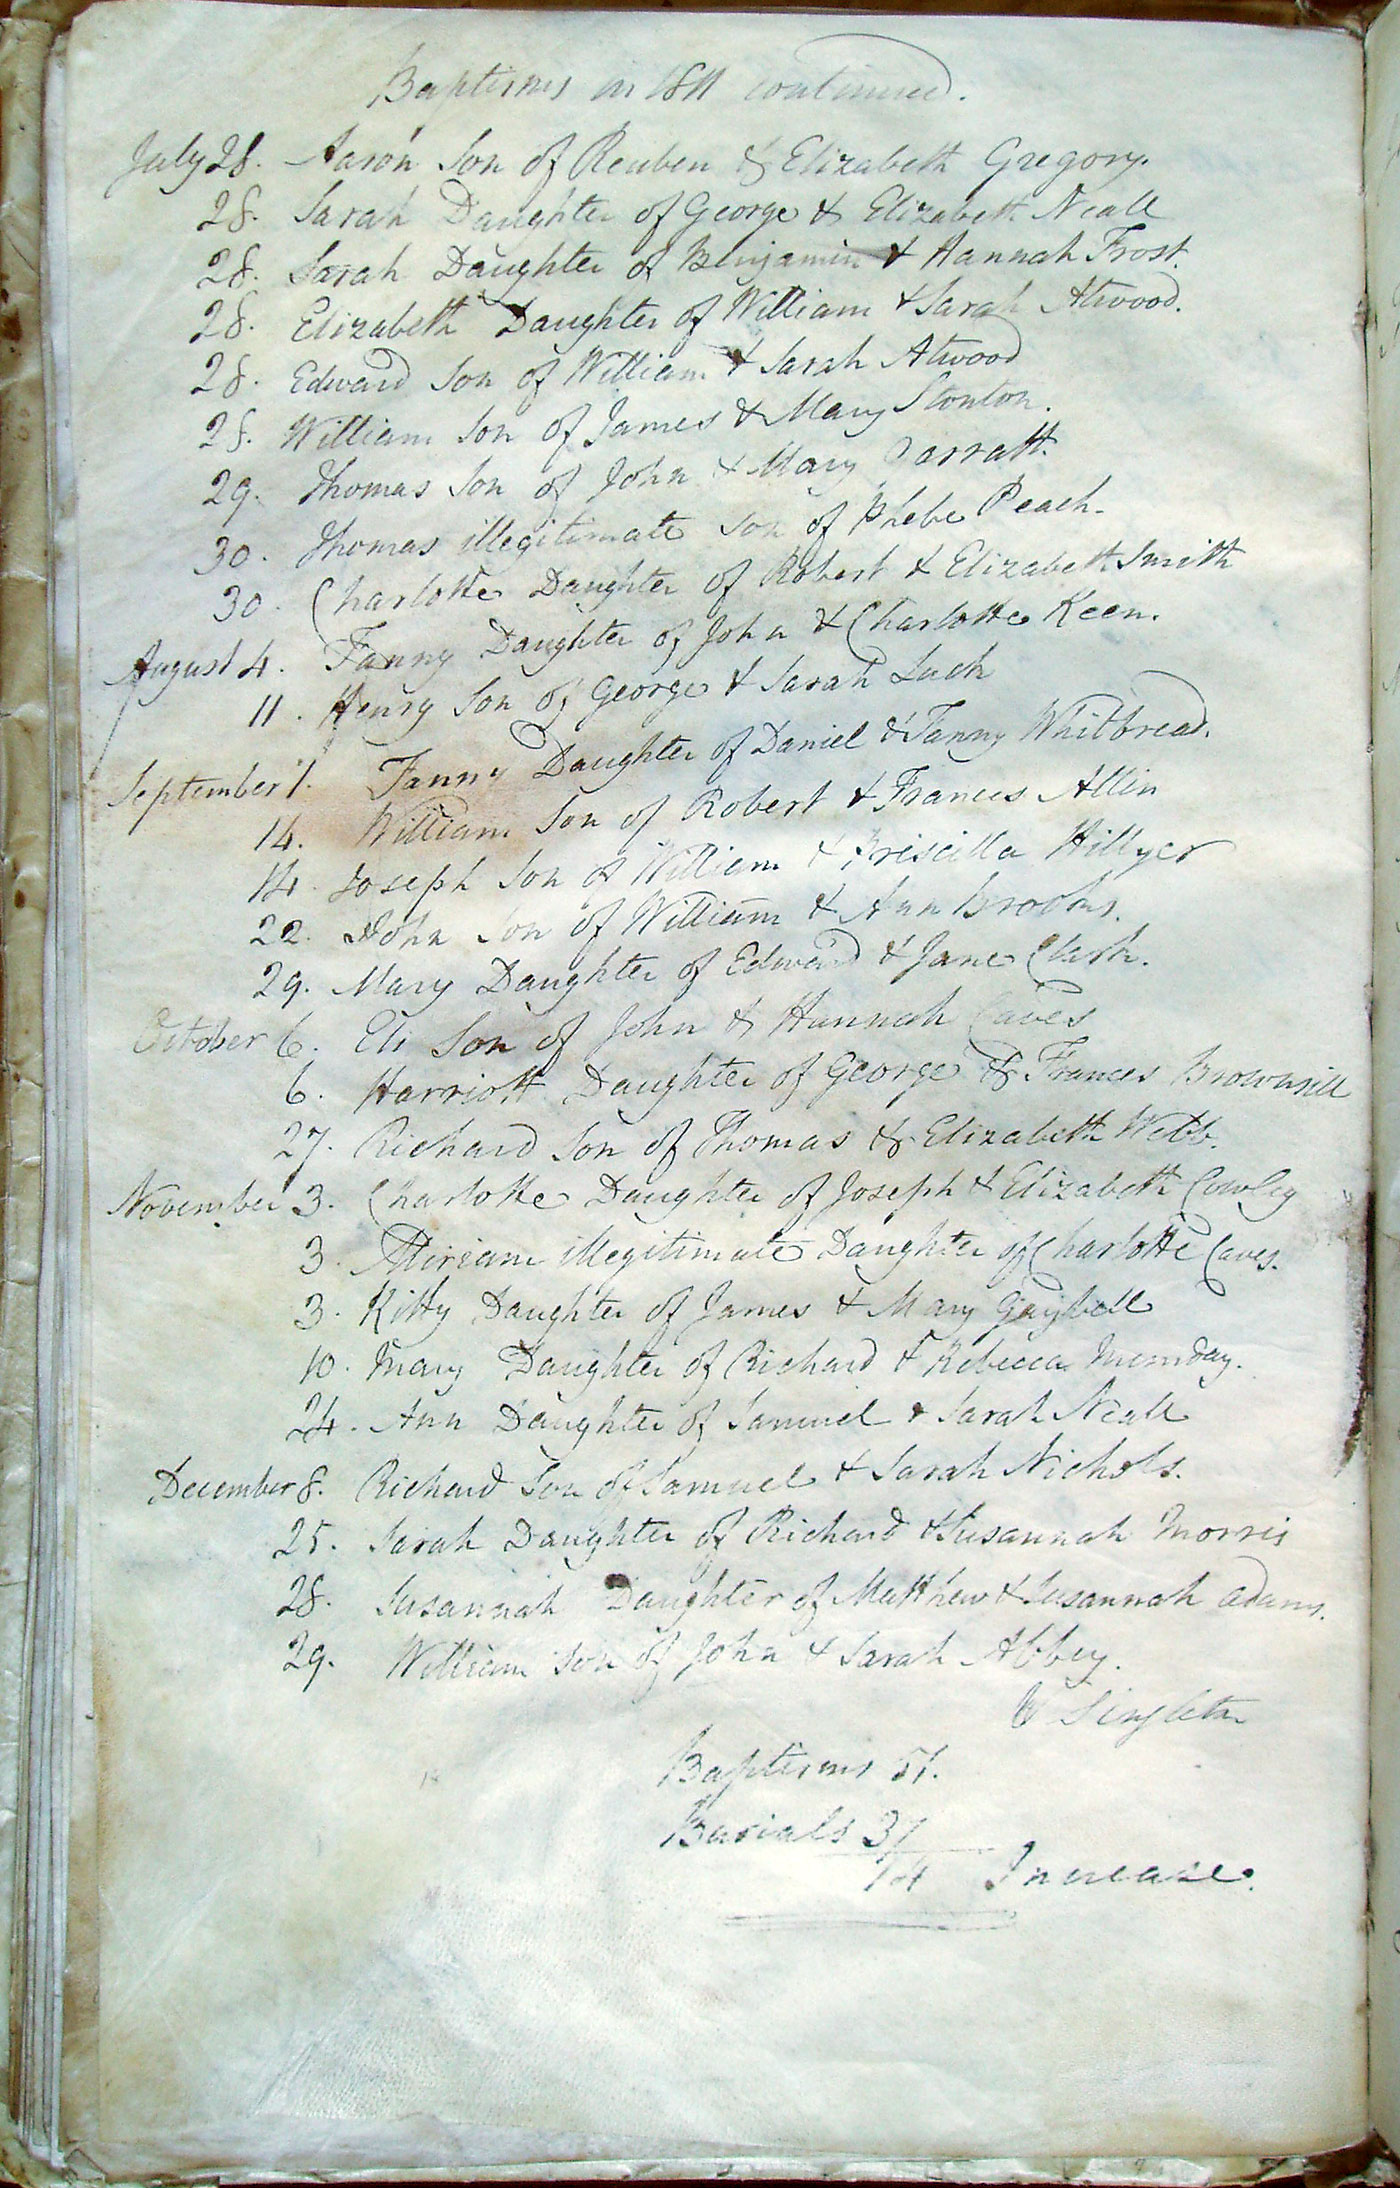 Baptisms in 1811 continued.
July 28. Aaron Son of Reuben & Elizabeth Gregory.
28. Sarah Daughter of George & Elizabeth Neall
28. Sarah Daughter of Benjamin & Hannah Frost.
28. Elizabeth Daughter of William & Sarah Atwood.
28. Edward Son of William & Sarah Atwood
28. William Son of James & Mary Stonton.
29. Thomas Son of John & Mary Garratt.
30. Thomas illegitimate Son of Phebe Peach.
30. Charlotte Daughter of Robert & Elizabeth Smith
August 4. Fanny Daughter of John & Charlotte Keen.
11. Henry Son of George & Sarah Such
September 1. Fanny Daughter of Daniel & Fanny Whitbread.
14. William Son of Robert & Frances Allin
14. Joseph Son of William & Priscilla Hillyer
22. John Son of William & Ann Brooks.
29. Mary Daughter of Edward & Jane Clark.
October 6. Eli Son of John & Hannah Caves
6. Harriott Daughter of George & Frances Brownsill
27. Richard Son of Thomas & Elizabeth Webb.
November 3. Charlotte Daughter of Joseph & Elizabeth Cowley
3. Miriam illegitimate Daughter of Charlotte Caves.
3. Kitty Daughter of James & Mary
10. Mary Daughter of Richard & Rebecca Munday.
24. Ann Daughter of Samuel & Sarah Neall
December 8. Richard Son of Samuel & Sarah Nichols.
25. Sarah Daughter of Richard & Susannah Morris
28. Susannah Daughter of Matthew & Susannah Adams.
29. William Son of John & Sarah Abbey.
W Singleton
Baptisms 51.
Burials 37
14 Increase.